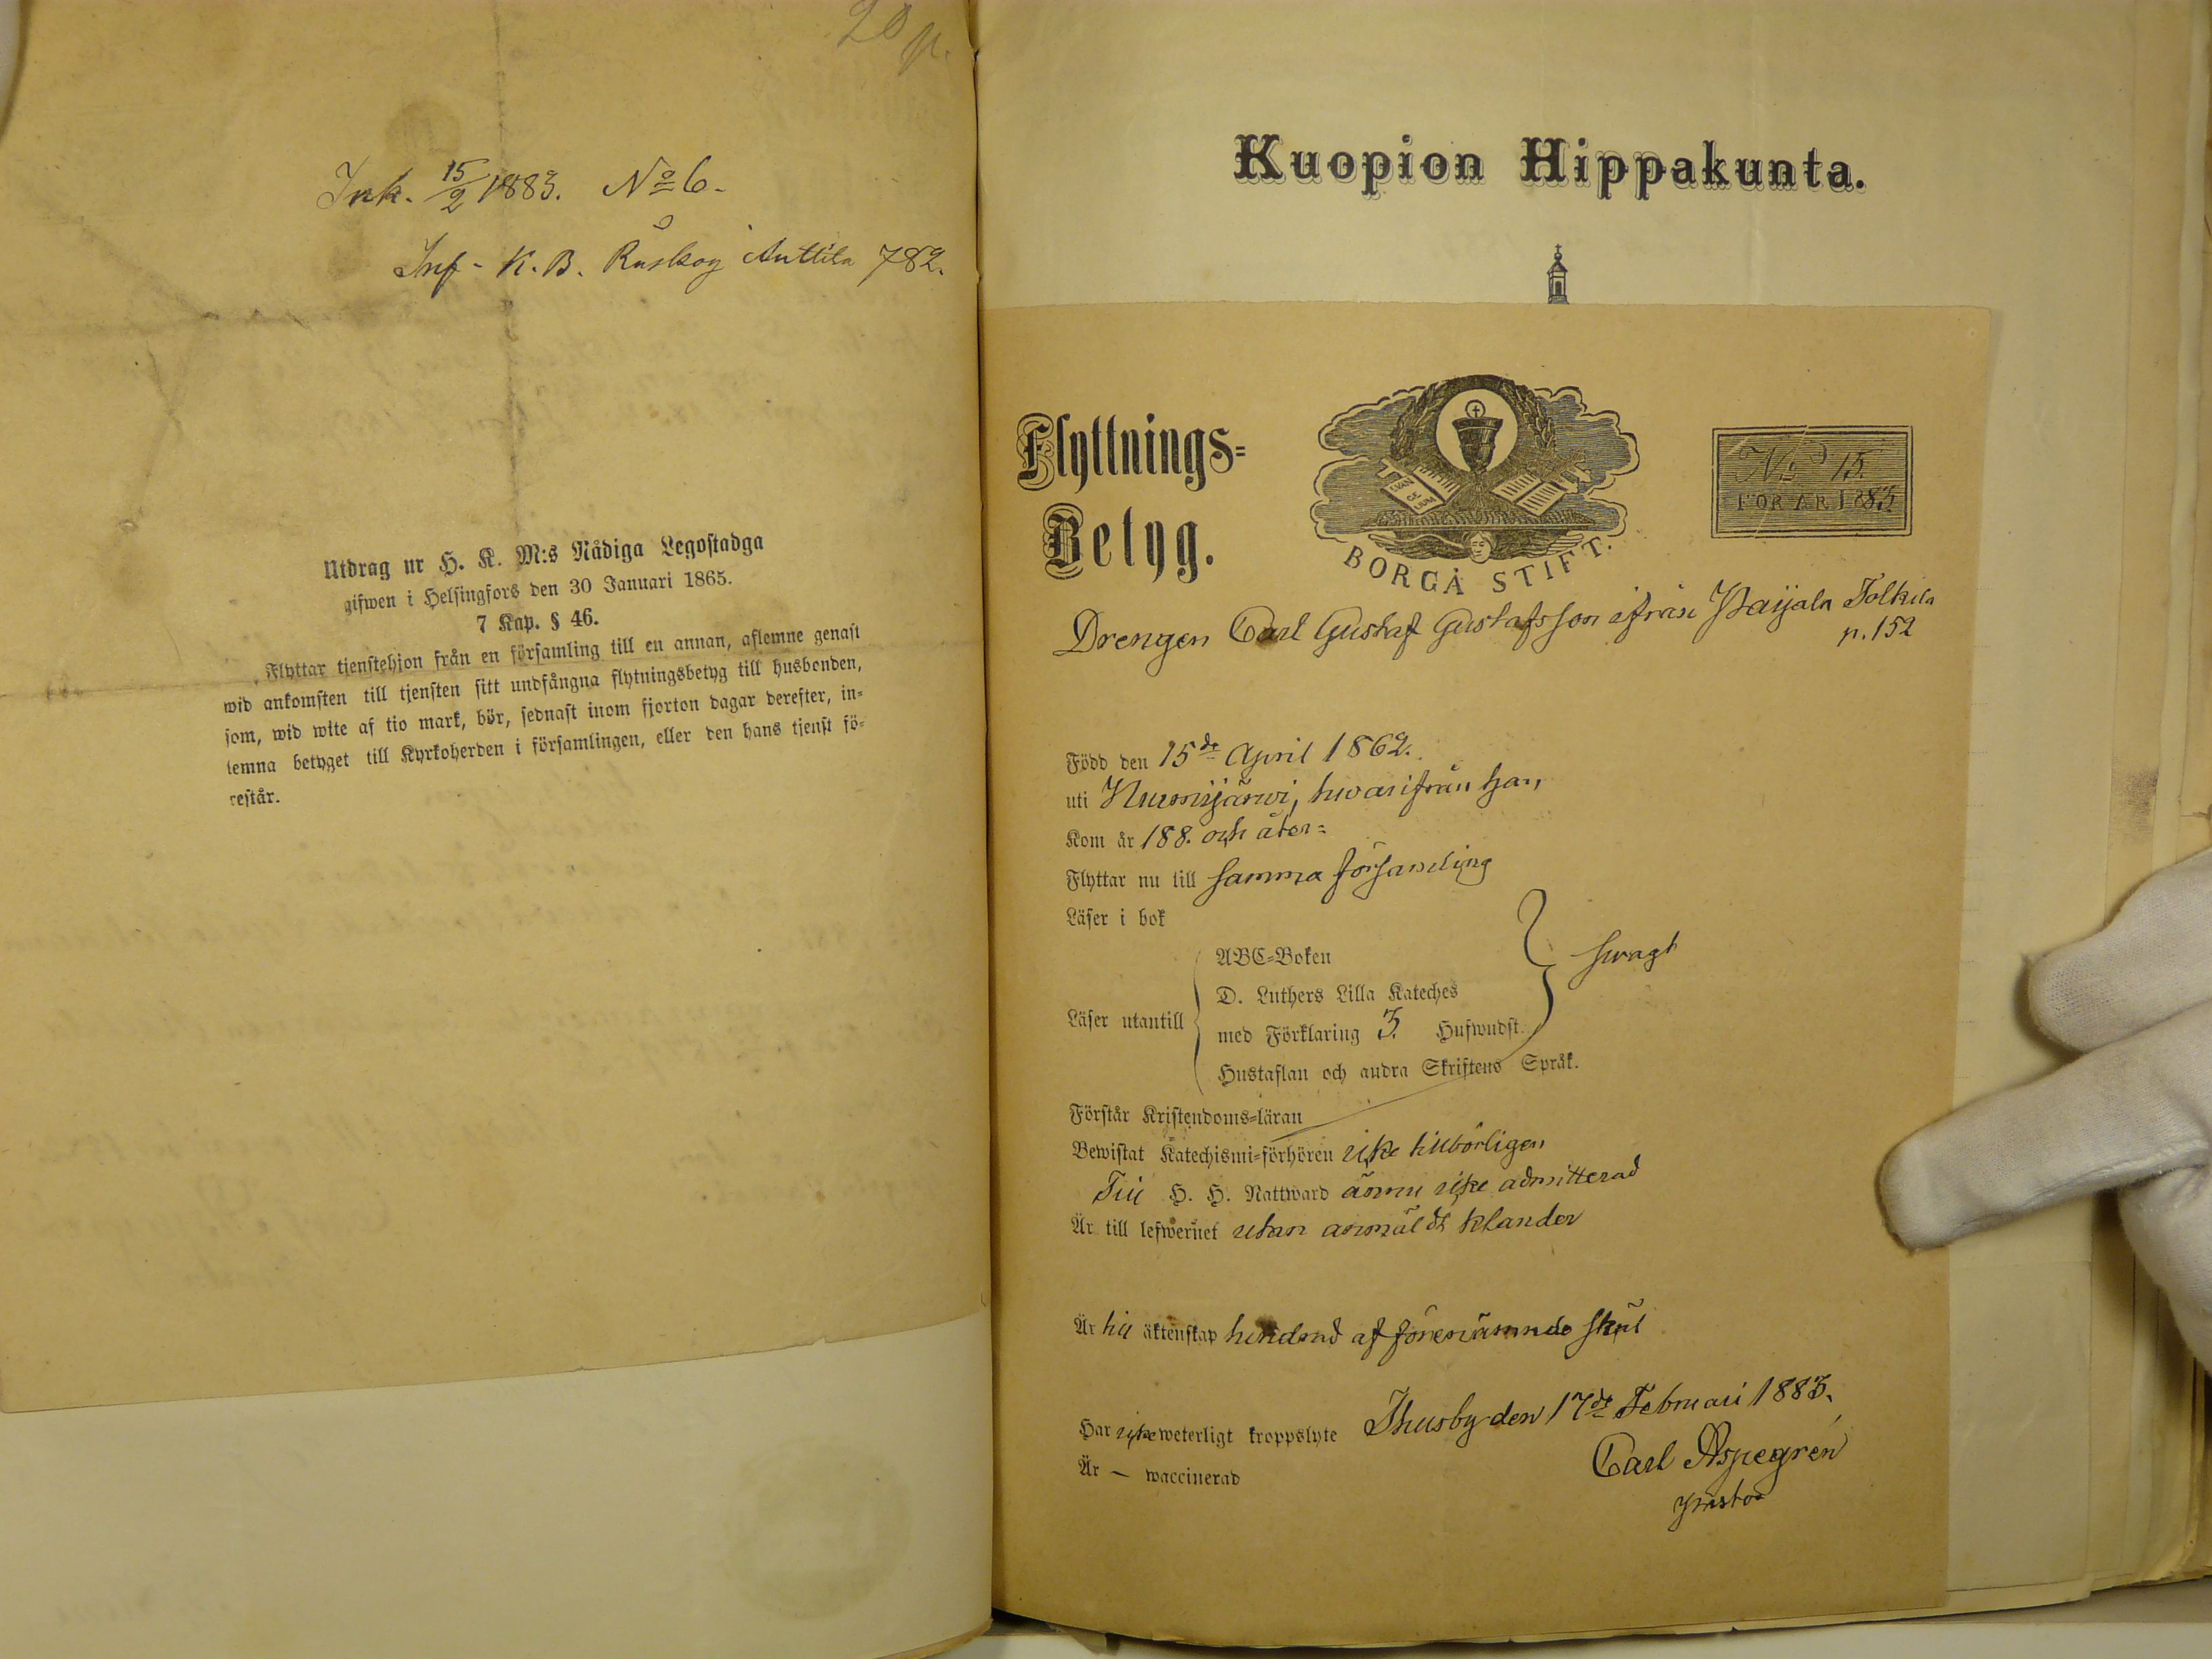 20 p.
Ink. 15/2 1883. No 6.
Inf. K. B. Ruskog Anttila 782.
Utdrag ur H. K. M:s Nådiga Legostadga
gifwen i Helsingfors den 30 Januari 1865.
7 Kap. § 46.
Flyttar tjenstehjon från en församling till en annan, aflemne genast
wid ankomsten till tjensten sitt undfångna flytningsbetyg till husbonden,
som, wid wite af tio mark, bör, sednast inom fjorton dagar derefter, in-
lemna betyget till Kyrkoherden i församlingen, eller den hans tjenst fö-
restår.
Kuopion Hippakunta.
Flyttnings-
Betyg.
EVAN
GE
LIUM
BORGÅ STIFT.
No 15.
FÖR ÅR 1883
Drengen Carl Gustaf Gustafsson ifrån Paijala Tolkila
p. 152
Född den 15de April 1862.
uti Nurmijärwi, hwarifrån han,
Kom år 188. och åter-
Flyttar nu till samma församling
Läser i bok
ABC-Boken
D. Luthers Lilla Kateches
swagt
Läser utantill
med Förklaring 3. Hufwudst.
Hustaflan och andra Skriftens Språk.
Förstår Kristendoms-läran
Bewistat Katechismi-förhören icke tillbörligen
Till H. H. Nattward ännu icke admitterad
Är till lefwernet utan anmäldt klander
Är till äktenskap hindrad af förenämnde skäl
Har icke weterligt kroppslyte Thusby den 17de Februari 1883.
Är — waccinerad
Carl Aspegren
Pastor